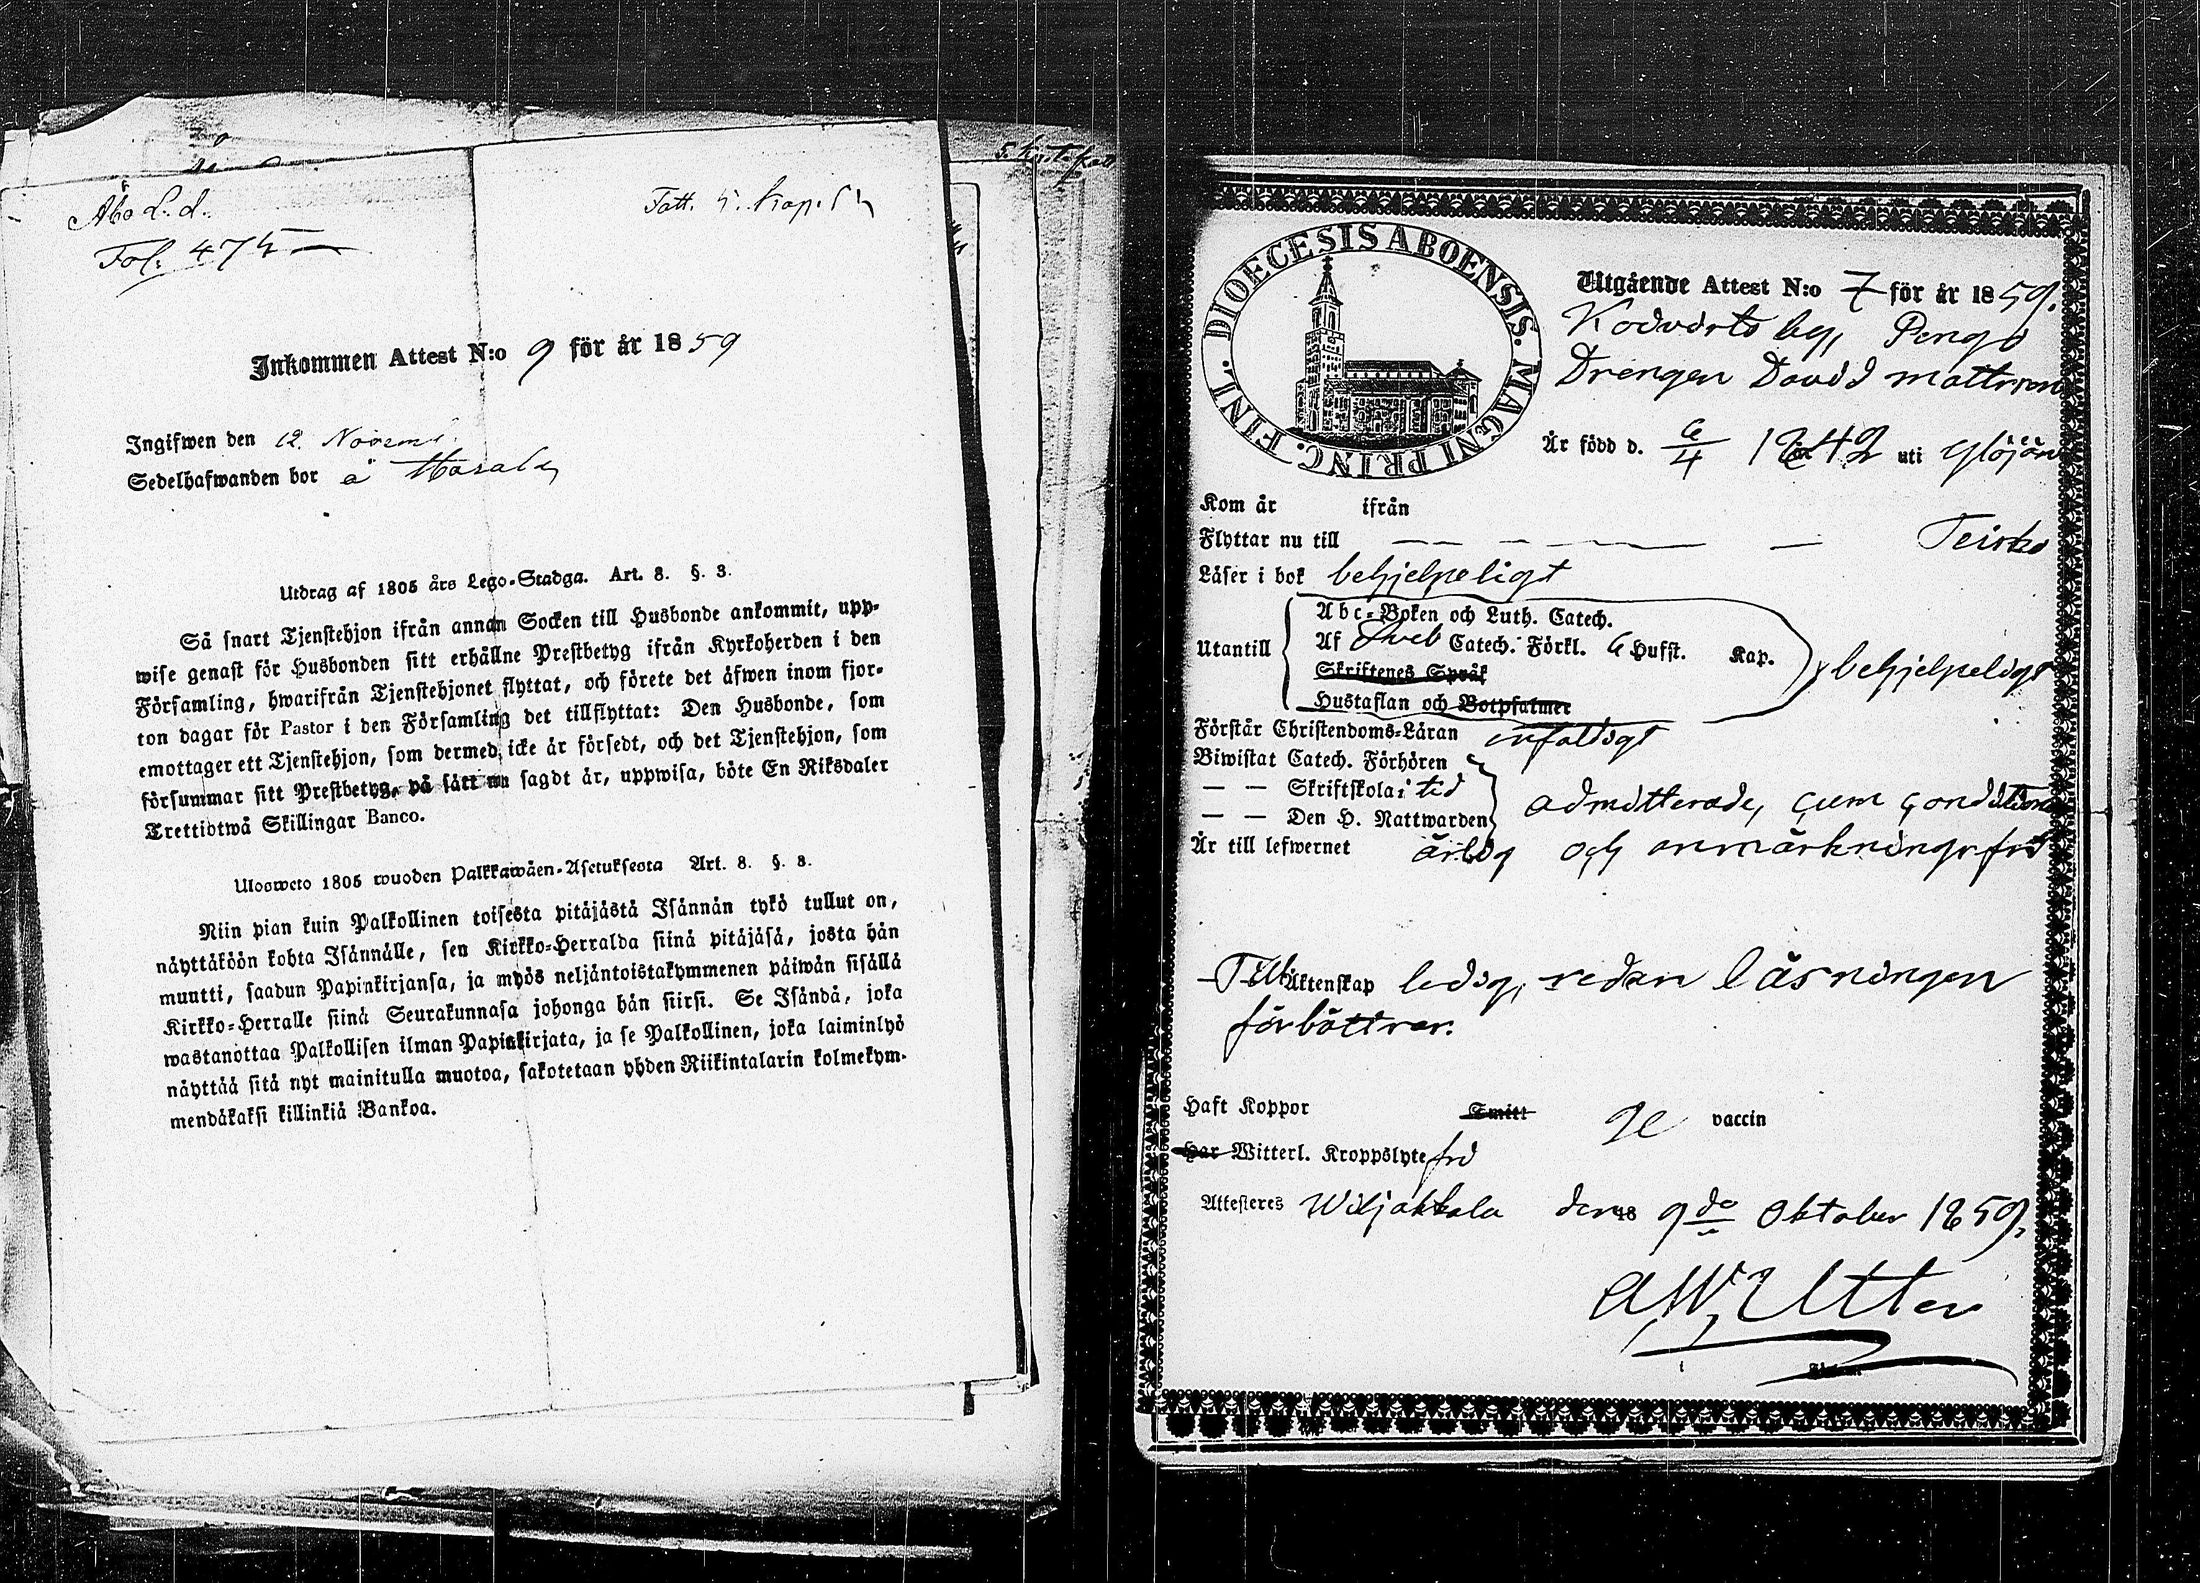 Åbo L. d.
Fol. 475
Inkommen Attest N:o 9 för år 1859
Ingifwen den 12 Novemb.
Sedelhafwanden bor å
Utdrag af 1805 års Lego-Stadga. Art. 8. §. 3.
Så snart Tjenstehjon ifrån annan Socken till Husbonde ankommit, upp-
wise genast för Husbonden sitt erhållne Prestbetyg ifrån Kyrkoherden i den
Församling, hwarifrån Tjenstehjonet flyttat, och förete det äfwen inom fjor-
ton dagar för Pastor i den Församling det tillflyttat: Den Husbonde, som
emottager ett Tjenstehjon, som dermed icke är försedt, och det Tjenstehjon, som
försummar sitt Prestbetyg, på sätt nu sagdt är, uppwisa, böte En Riksdaler
Trettiotwå Skillingar Banco.
Ulosweto 1805 wuoden Palkkawäen-Asetuksesta Art. 8. §. 3.
Niin pian kuin Palkollinen toisesta pitäjästä Isännän tykö tullut on,
näyttäköön kohta Isännälle, sen Kirkko-Herralda siinä pitäjäsä, josta hän
muutti, saadun Papinkirjansa, ja myös neljäntoistakymmenen päiwän sisällä
Kirkko-Herralle siinä Seurakunnasa johonga hän siirsi. Se Isändä, joka
wastanottaa Palkollisen ilman Papinkirjata, ja se Palkollinen, joka laiminlyö
näyttää sitä nyt mainitulla muotoa, sakotetaan yhden Riikintalarin kolmekym-
mendäkaksi killinkiä Bankoa.
DIOECESIS ABOENSIS. MAGNI PRINC. FINL.
Utgående Attest N:o 7 för år 1859.
by,
Drengen David Mattsson
Är född d. 6/4 1842 uti Ylöjärvi
Kom år ifrån
Flyttar nu till — — — — — Teisko
Läser i bok behjelpeligt
Utantill
Abc-Boken och Luth. Catech.
Af Sveb Catech. Förkl. 6 Hufst. Kap.
Skriftenes Språk
Hustaflan och Botpsalmer
behjelpeligt
Förstår Christendoms-Läran enfaldigt
Biwistat Catech. Förhören
— — Skriftskola i tid
— — Den H. Nattwarden
admitterade, cum conditione
Är till lefwernet ärlig och anmärkningsfri
Till Äktenskap ledig, sedan läsningen
förbättrar.
Haft Koppor Smitt ge vaccin
Har Witterl. Kroppslyte fri
Attesteres Wiljakkala den 18 9de Oktober 1859.
AW Utter